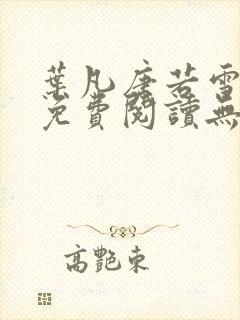 葉凡唐若雪
免費閱讀無
高艷東